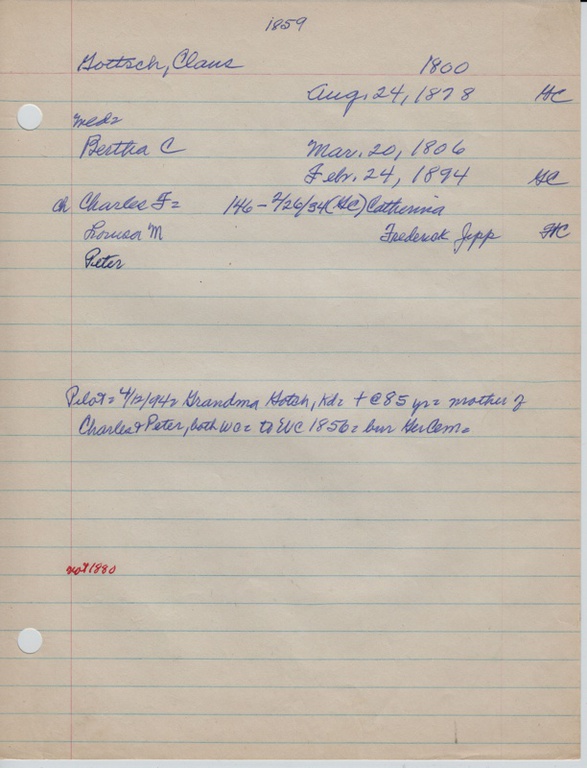 1859
Gottsch, Claus 1800
Aug. 24, 1878 GC
med=
Bertha C Mar. 20, 1806
Febr. 24, 1894 GC
ch Charles F= 146 - 2/26/34 (GC) Catherina
Louisa M Frederick Jipp GC
Peter
Pilot= 4/12/94= Grandma Gotch, Kd= + @ 85 yr= mother of
Charles & Peter, both WC= to WC 1856= bur Ger Cem=
not 1880